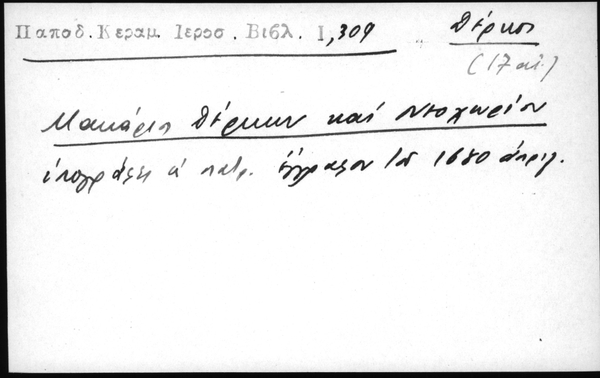 Παπαδ. Κεραμ. Ιεροσ. Βιβλ. Ι, 309 Δέρκοι
(17 αἰ.)
Μακάριος Δέρκων καί Νεοχωρίου
ὑπογράφει πατρ. ἔγγραφον 1680 ἀπριλ.